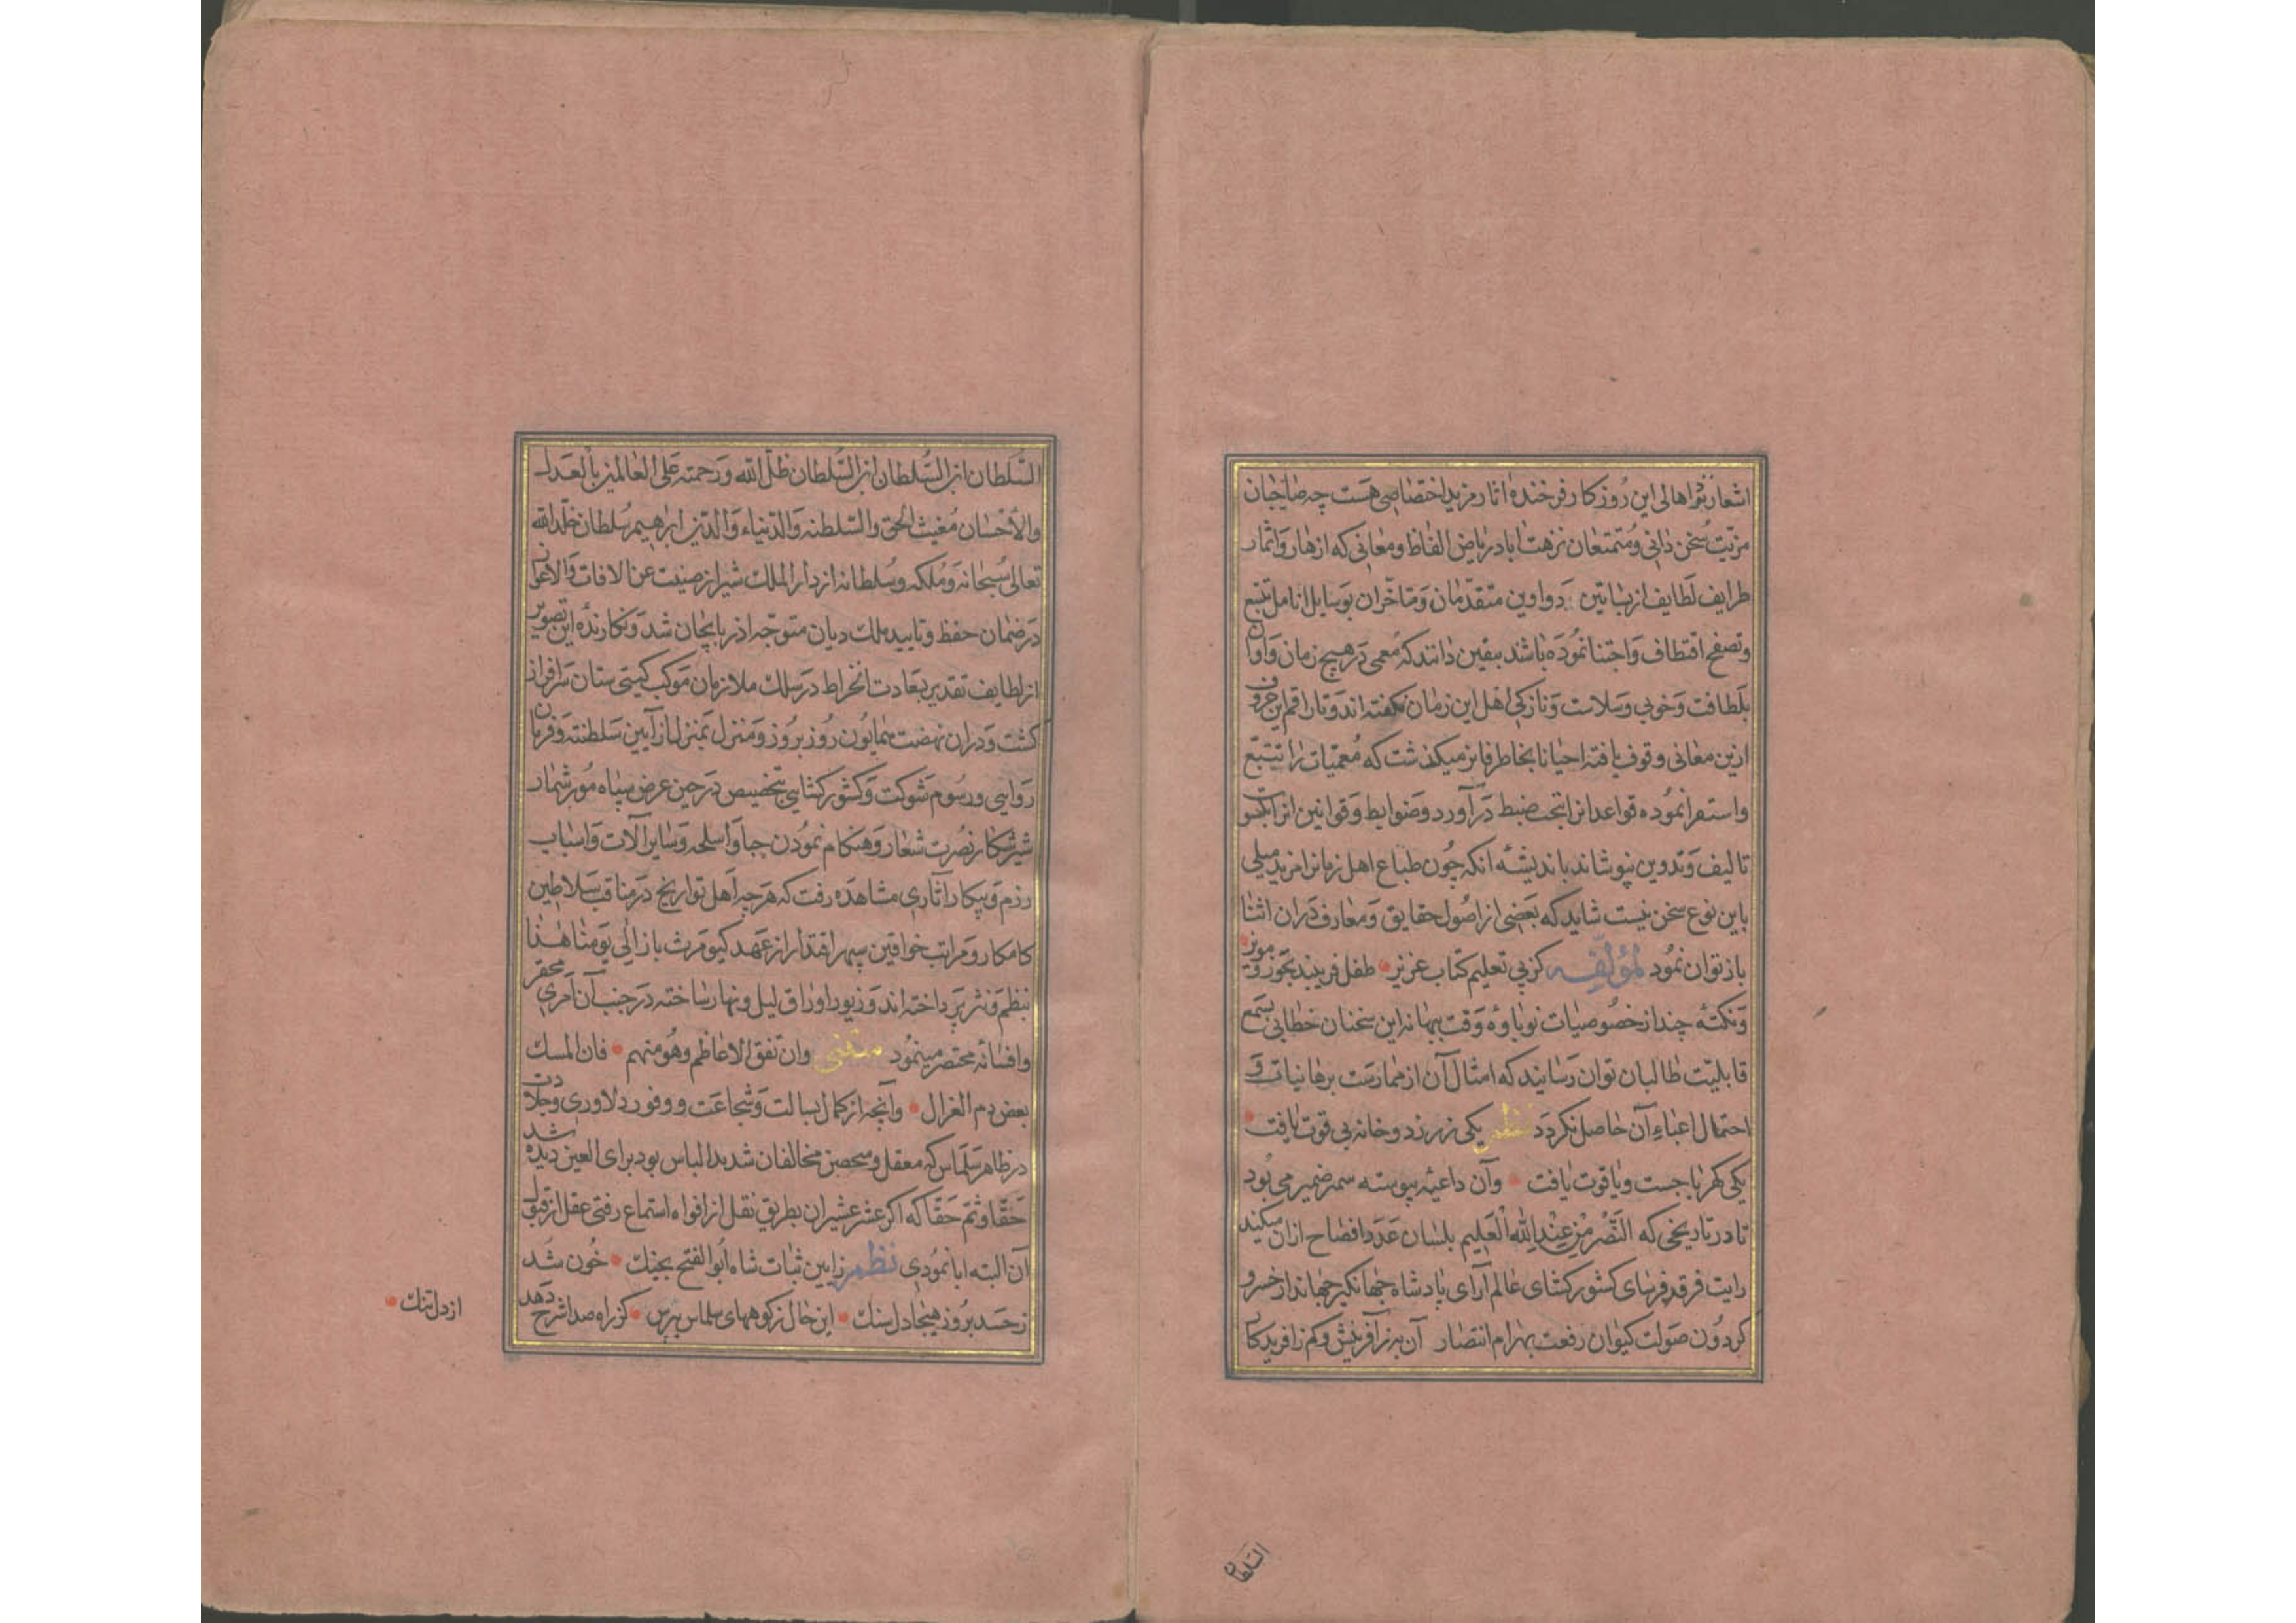 اشعار نثر اهالی این روزکار فرخنده اثار مزید اختصاصی هست چه صاحبان
مزیّت سخن دانی و متمتعان نزهت اباد ریاض الفاظ و معانی که از هار و اثمار
طرایف لطایف از بساتین دواوین متقدّمان و متاخّران بوسایل انامل تتبع
و تصفح اقتطاف و اجتنا نموده باشد بیقین دانند که معمی در هیچ زمان و اوان
بلطافت و خوبی و سلاست و نازکی اهل این زمان نکفته اند و تا راقم این حروف
ازین معانی وقوف یافته احیانا بخاطر فاتر میکذشت که معمیات را تتبّع
و استقرا نموده قواعد انرا تحت ضبط در آورد و ضوابط و قوانین انرا کسو
تالیف و تدوین پوشاند باندیشهٔ انکه چون طباع اهل زمانرا مزید میلی
باین نوع سخن نیست شاید که بعضی از اصول حقایق و معارف در ان اثنا
باز توان نمود لمؤلفه کز پی تعلیم کتاب عزیز طفل فریبند بجوز و مویز
و نکتهٔ چند از خصوصیات نوباوهٔ وقت ببهانه این سخنان خطابی بسمع
قابلیّت طالبان توان رسانید که امثال آن از ممارست برهانیات و
احتمال اعباء آن حاصل نکردد نظم یکی زهر زد و خانه بی قوت یافت
یکی کهربا جست و یاقوت یافت وآن داعیه پیوسته سمر ضمیر می بود
تا در تاریخی که النّصر من عند الله العلیم بلسان عدد افصاح ازان میکند
رایت فرقد فرسای کشور کشای عالم آرای پادشاه جهانکیر جهاندار خسرو
کردون صولت کیوان رفعت بهرام انتصار آن به ز آفرینش و کم ز آفریدکار
السّلطان
السّلطان ابن السّلطان ابن السّلطان ظلّ الله و رحمته علی العالمین بالعدل
والاحسان مغیث الحق والسّلطنه والدّنیاء والدّین ابراهیم سلطان خلّد الله
تعالی سبحانه و ملکه و سلطانه از دار الملک شیراز صینت عن الافات والاعوان
در ضمان حفظ و تایید ملک دیان متوجّه اذربایجان شد و نکارندهٔ این تصویر
از لطایف تقدیر بسعادت انخراط در سلک ملازمان موکب کیتی ستان سرافراز
کشت و دران نهضت همایون روز بروز و منزل بمنزل از آیین سلطنت و فرمان
روایی و رسوم شوکت و کشور کشایی بتخصیص در حین عرض سپاه مور شمار
شیر شکار نصرت شعار و هنکام نمودن جبا و اسلحه و سایر آلات و اسباب
رزم و پیکار آثاری مشاهده رفت که هرچه اهل تواریخ در مناقب سلاطین
کامکار و مراتب خواقین سپهر اقتدار از عهد کیومرث باز الی یومنا هذا
بنظم و نثر پرداخته اند و زیور اوراق لیل و نهار ساخته در جنب آن امری محقر
و افسانه مختصر مینمود متنبی وان تفق الاعاظم وهو منهم فان المسک
بعض دم الغزال وآنچه از کمال بسالت و شجاعت و وفور دلاوری و جلادت
در ظاهر سلماس که معقل و محصن مخالفان شدید الباس بود برای العین دیده شد
حقّا و ثمّ حقّا که اکر عشر عشیر ان بطریق نقل از افواه استماع رفتی عقل از قبول
آن البته ابا نمودی نظم زایین ثبات شاه ابو الفتح بجنک خون شد
ز حسد بروز هیجا دل سنک این حال ز کوههای سلماس بپرس کز راه صدا شرح دهد
از دل تنک